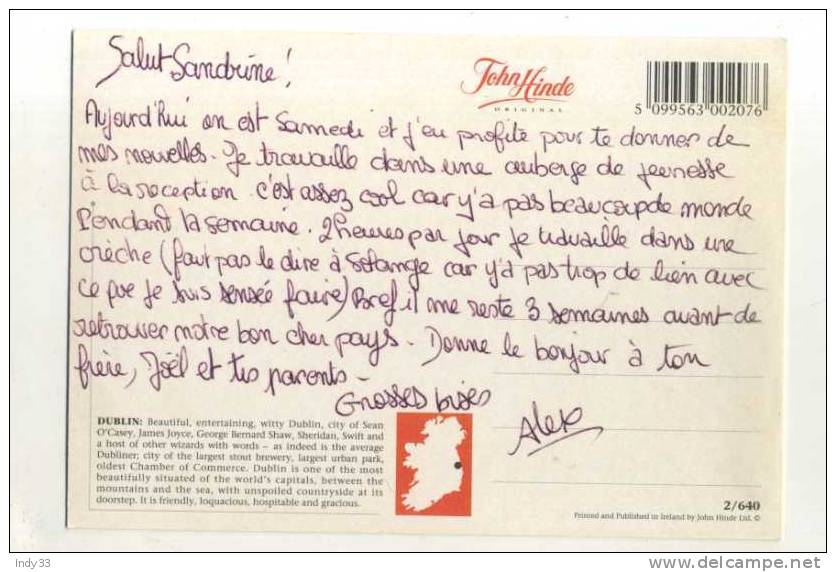 Salut Sandrine!
John Hinde
ORIGINAL
5 099563 002076
Aujourd'hui on est Samedi et j'en profite pour te donner de
mes nouvelles. Je travaille dans une auberge de jeunesse
à la réception c'est assez cool car y'a pas beaucoup de monde
Pendant la semaine. 2 heures par jour je travaille dans une
crèche (faut pas le dire à Solange car y'a pas trop de lien avec
ce que je suis sensée faire) Bref il me reste 3 semaines avant de
retrouver notre bon cher pays. Donne le bonjour à ton
frère, Joël et tes parents -
Grosses bises
Alex
DUBLIN: Beautiful, entertaining, witty Dublin, city of Sean
O'Casey, James Joyce, George Bernard Shaw, Sheridan, Swift and
a host of other wizards with words – as indeed is the average
Dubliner; city of the largest stout brewery, largest urban park,
oldest Chamber of Commerce. Dublin is one of the most
beautifully situated of the world's capitals, between the
mountains and the sea, with unspoiled countryside at its
doorstep. It is friendly, loquacious, hospitable and gracious.
2/640
Printed and Published in Ireland by John Hinde Ltd. ©
Indy33
delcampe.net